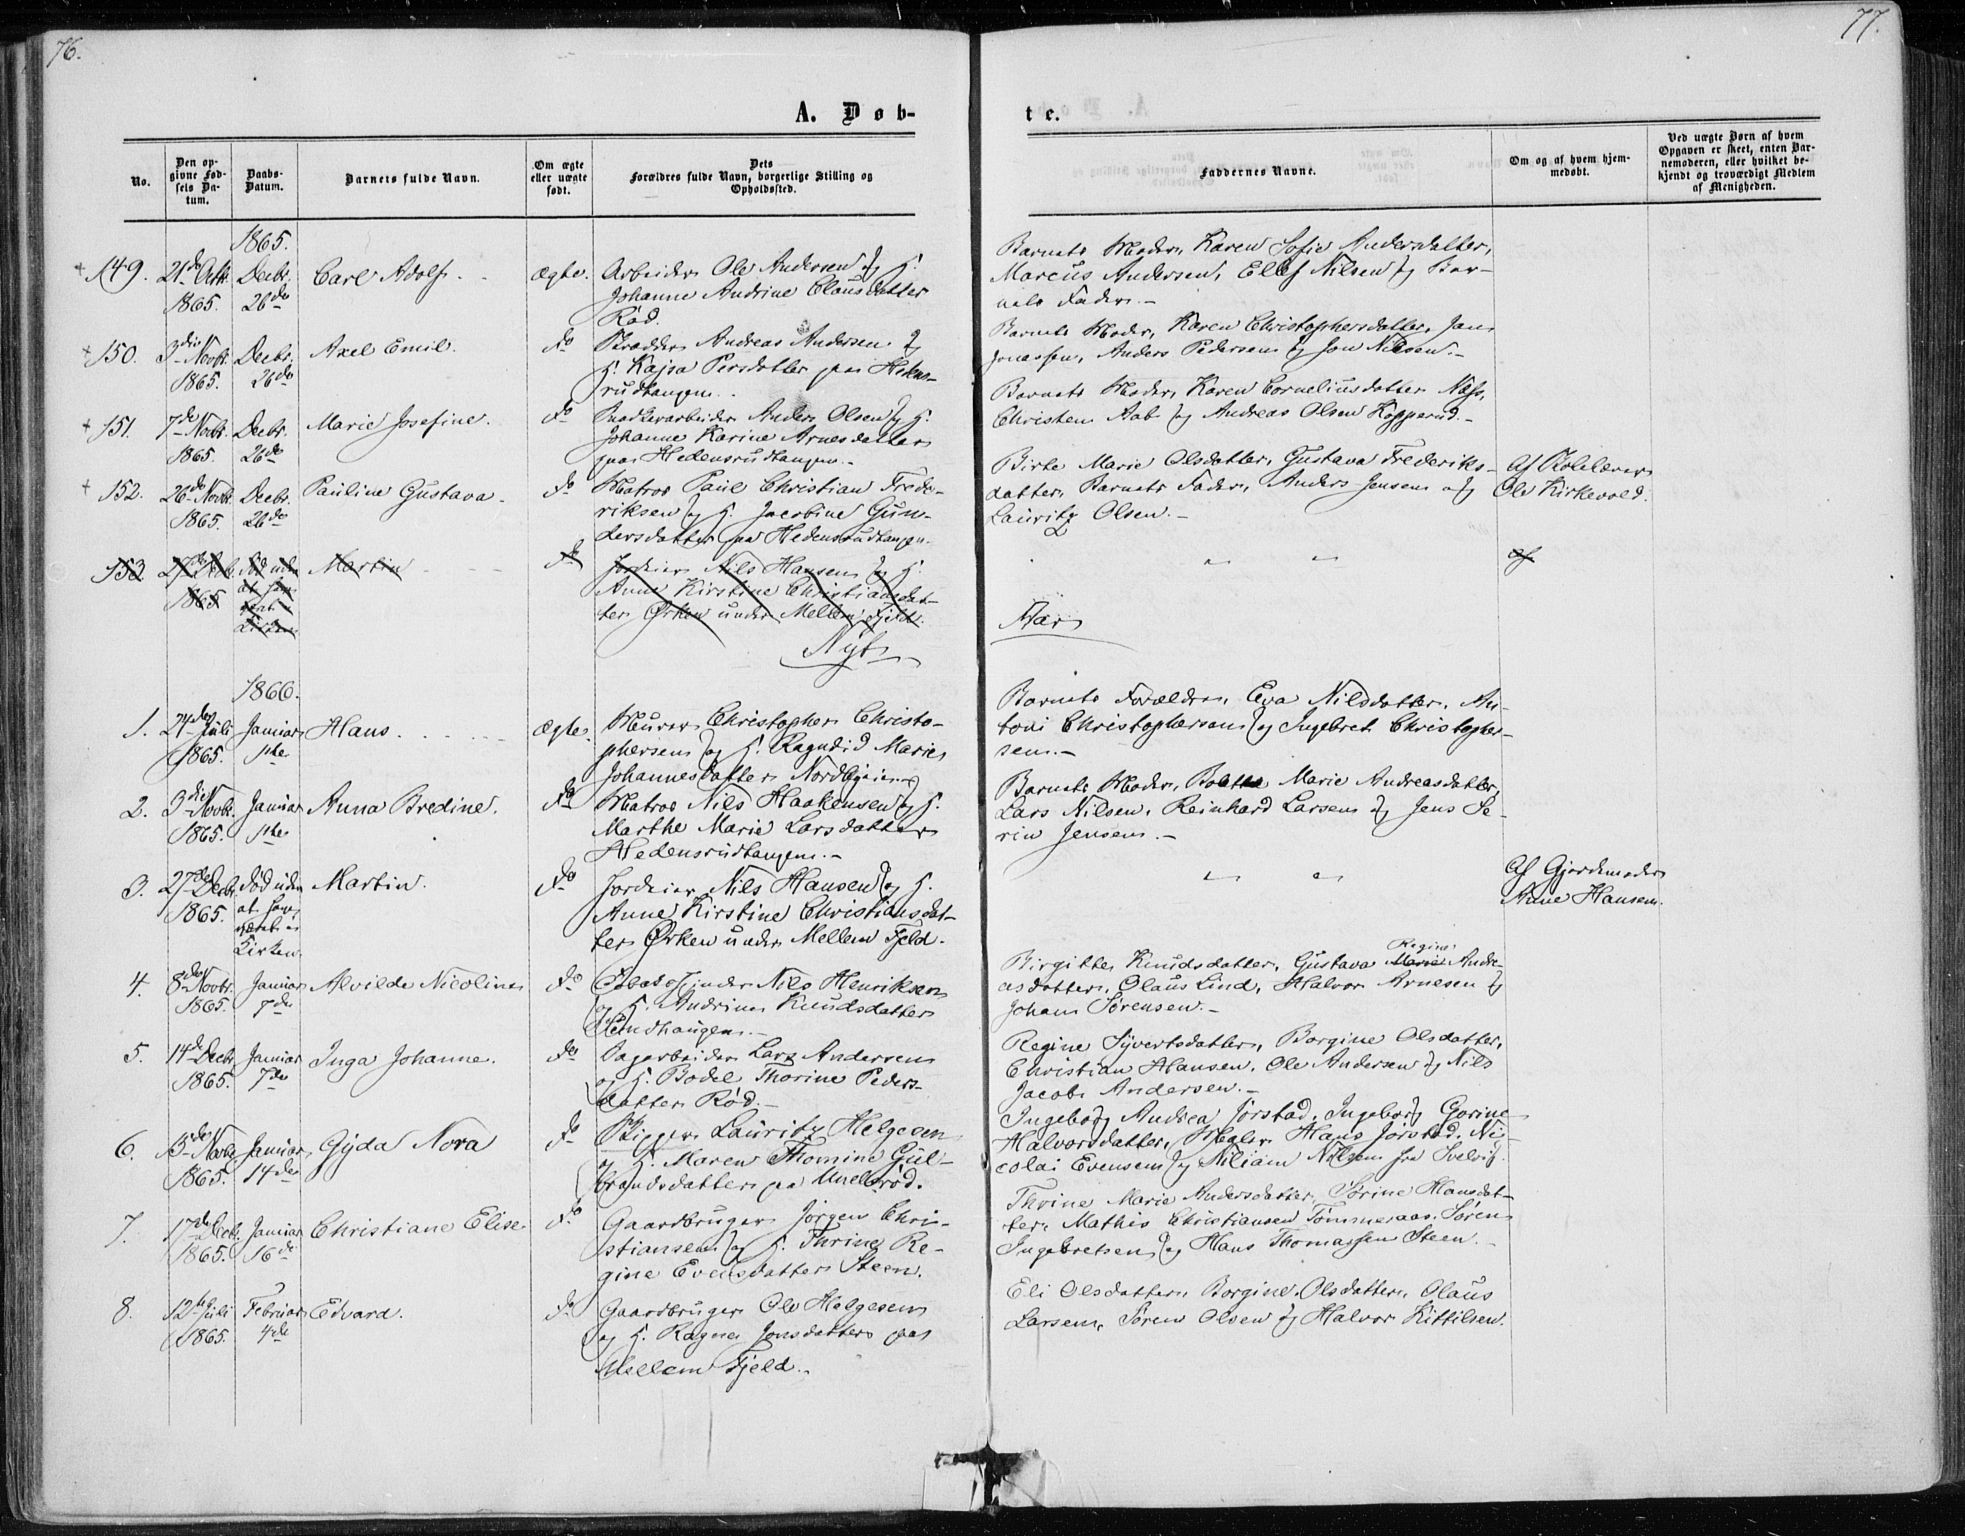 76.
77.
A. Døb-
te.
No.
Den op-
givne Fød-
sels Da-
tum.
Daabs-
Datum.
Barnets fulde Navn.
Om ægte
eller uægte
født.
Dets
Forældres fulde Navn, borgerlige Stilling og
Opholdssted.
Faddernes Navne.
Om og af hvem hjem-
medøbt.
Ved uægte Børn af hvem
Opgaven er skeet, enten Bar-
nemoderen, eller hvilket be-
kjendt og troværdigt Medlem
af Menigheden.
1865.
149.
21de
1865.
Decbr.
26de
Carl Adolf.
Ægte.
Arbeider Ole Andersen og H.
Johanne Andrine Clausdatter
Rød.
Barnets Moder, Karen Sofie Andersdatter,
Marcus Andersen, Ellef Nilsen og Bar-
nets Fader.-
150.
3die Novbr.
1865.
Decbr.
26de
Axel Emil.
do
Skrædder Andreas Andersen og
H. Kajsa Persdatter paa Hedens-
rudtangen.
Barnets Moder, Karen Christophersdatter, Jans
Jonassen, Anders Pedersen og Jon Nilsen.-
151.
7de Novbr.
1865.
Decbr.
26de
Marie Josefine.
do
Anders Olsen og H.
Johanne Karine Arnesdatter
paa Hedensrudtangen.-
Barnets Moder, Karen Corneliusdatter Næss,
Christen Aab og Andreas Olsen Kopperud.-
152.
26de Novbr.
1865.
Decbr.
26de
Pauline Gustava.
do
Matros Paul Christian Frede-
riksen og H. Jacobine Gun-
dersdatter paa Hedensrudtangen.
Birte Marie Olsdatter, Gustava Frederiks-
datter, Barnets Fader, Anders Jensen og
Lauritz Olsen.-
Af Skolelærer
Ole Kirkevold.
153.
27de Decbr.
1865
Død uden
at have
været i
Kirken
Martin
do
Jordeier Nils Hansen og H.
Anne Kirstine Christiansdat-
ter Ørken under Mellem Fjeld.
" "
af
Nyt
Aar
1866.
1.
24de Juli
1865.
Januar
1ste
Hans.
Ægte.
Murer Christopher Christo-
phersen og H. Ragndid Marie
Johannesdatter Nordbyeier
Barnets Forældre, Eva Nilsdatter, An-
toni Christophersen og Ingebret Christopher-
sen.-
2.
3die Novbr.
1865.
Januar
1ste
Anna Bredine.
do
Matros Nils Haakensen og H.
Marthe Marie Larsdatter
Hedensrudtangen.-
Barnets Moder, Bolette Marie Andreasdatter,
Lars Nilsen, Reinhard Larsen og Jens Se-
rin Jensen.-
3.
27de Decbr.
1865.
Død uden
at have
været i
Kirken.
Martin.
do
Jordeier Nils Hansen og H.
Anne Kirstine Christiansdat-
ter Ørken under Mellem Fjeld.
" "
Af Gjordemoder
Anne Hansen.
4.
8de Novbr.
1865.
Januar
7de
Alvilde Nicoline
do
Nils Henriksen
og H. Andrine Knudsdatter
Sandhaugen.-
Birgitte Knudsdatter, Gustava Marie Regine Andre-
asdatter, Olaus Lind, Halvor Arnesen og
Johan Sørensen.-
5.
14de Decbr.
1865.
Januar
7de
Inga Johanne.
do
Sagarbeider Lars Andersen
og H. Bodel Thorine Peders-
datter Rød.-
Regine Syvertsdatter, Borgine Olsdatter,
Christian Hansen, Ole Andersen og Nils
Jacob Andersen.-
6.
3die Novbr.
1865.
Januar
14de
Gyda Nora
do
Skipper Lauritz Helgesen
og H. Maren Thomine Gul-
brandsdatter paa Knebrød.
Ingeborg Andrea Jørstad, Ingeborg Gorine
Halvorsdatter, Megler Hans Jørstad, Ni-
colai Evensen og Niliam Nilsen fra Svelvig.
7.
17de Decbr.
1865.
Januar
16de
Christiane Elise.
do
Gaardbruger Jørgen Chri-
stiansen og H. Thrine Re-
gine Evensdatter Steen.
Thrine Marie Andersdatter, Sørine Hansdat-
ter, Mathis Christiansen Tømmeraas, Søren
Ingebretsen og Hans Thomassen Steen.-
8.
12te Juli
1865.
Februar
4de
Edvard.
do
Gaardbruger Ole Helgesen
og H. Ragne Jonsdatter paa
Mellem Fjeld.
Eli Olsdatter, Borgine Olsdatter, Olaus
Larsen, Søren Olsen og Halvor Kittilsen.